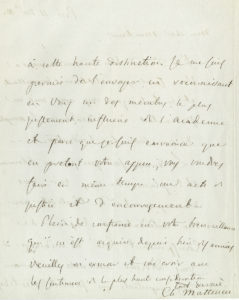 à cette haute distinction. Je me suis
permis de l'envoyer en reconnaissant
en vous un des membres les plus
justement influents de l'académie
et parce que je suis convaincu que
en prêtant votre appui, vous voudrez
faire en même temps un acte de
justice et d'encouragement.
Plein de confiance en votre bienveillance
qui m'est acquise depuis bien des années
veuillez et me croire avec
les sentiments de la plus haute considération
Ch Matteucci